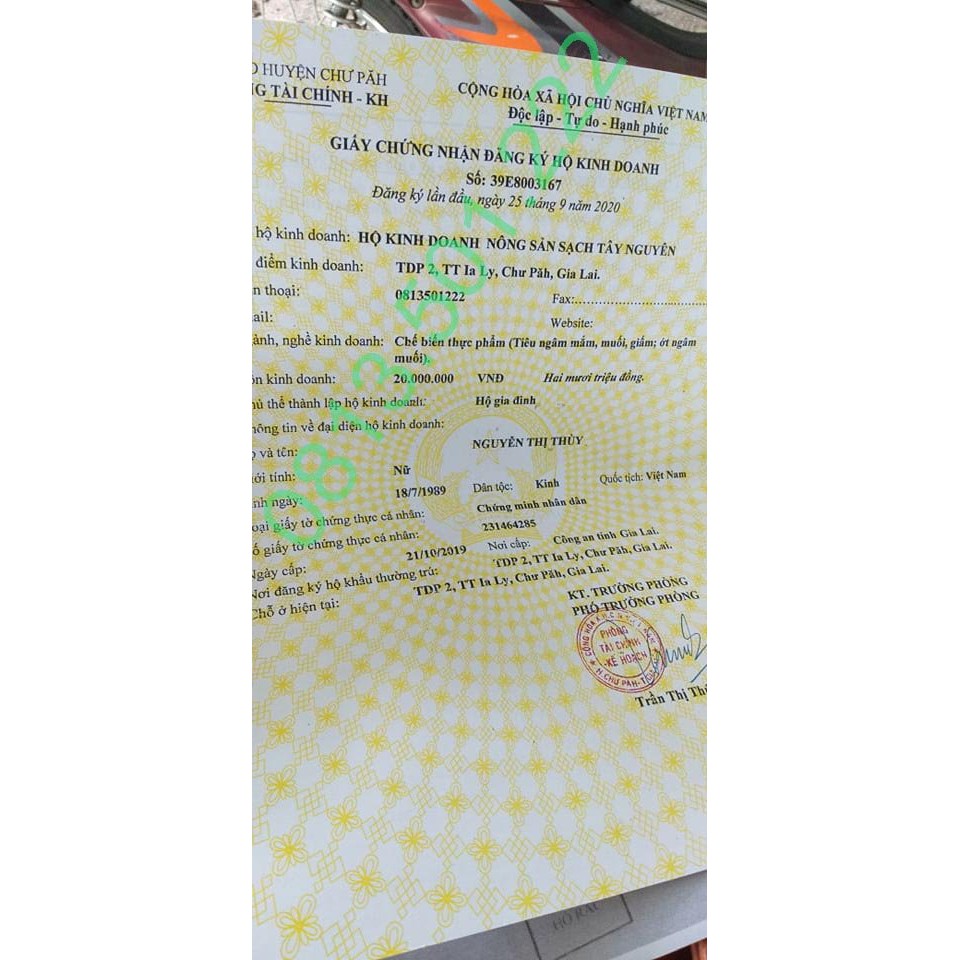 HUYỆN CHƯ PĂH
TÀI CHÍNH - KH
CỘNG HÒA XÃ HỘI CHỦ NGHĨA VIỆT NAM
Độc lập - Tự do - Hạnh phúc
GIẤY CHỨNG NHẬN ĐĂNG KÝ HỘ KINH DOANH
Số: 39E8003167
Đăng ký lần đầu, ngày 25 tháng 9 năm 2020
hộ kinh doanh: HỘ KINH DOANH NÔNG SẢN SẠCH TÂY NGUYÊN
điểm kinh doanh: TDP 2, TT Ia Ly, Chư Păh, Gia Lai.
thoại: 0813501222 Fax:
Website:
nghề kinh doanh: Chế biến thực phẩm (Tiêu ngâm mắm, muối, giấm; ớt ngâm
muối).
kinh doanh: 20.000.000 VNĐ Hai mươi triệu đồng.
thể thành lập hộ kinh doanh: Hộ gia đình
tin về đại diện hộ kinh doanh:
và tên: NGUYỄN THỊ THÙY
tính: Nữ
ngày: 18/7/1989 Dân tộc: Kinh Quốc tịch: Việt Nam
giấy tờ chứng thực cá nhân: Chứng minh nhân dân
giấy tờ chứng thực cá nhân: 231464285
Ngày cấp: 21/10/2019 Nơi cấp: Công an tỉnh Gia Lai.
Nơi đăng ký hộ khẩu thường trú: TDP 2, TT Ia Ly, Chư Păh, Gia Lai.
Chỗ ở hiện tại: TDP 2, TT Ia Ly, Chư Păh, Gia Lai.
KT. TRƯỞNG PHÒNG
PHÓ TRƯỞNG PHÒNG
PHÒNG
TÀI CHÍNH
-KẾ HOẠCH
H.CHƯ PĂH
Trần Thị
0813.501.222